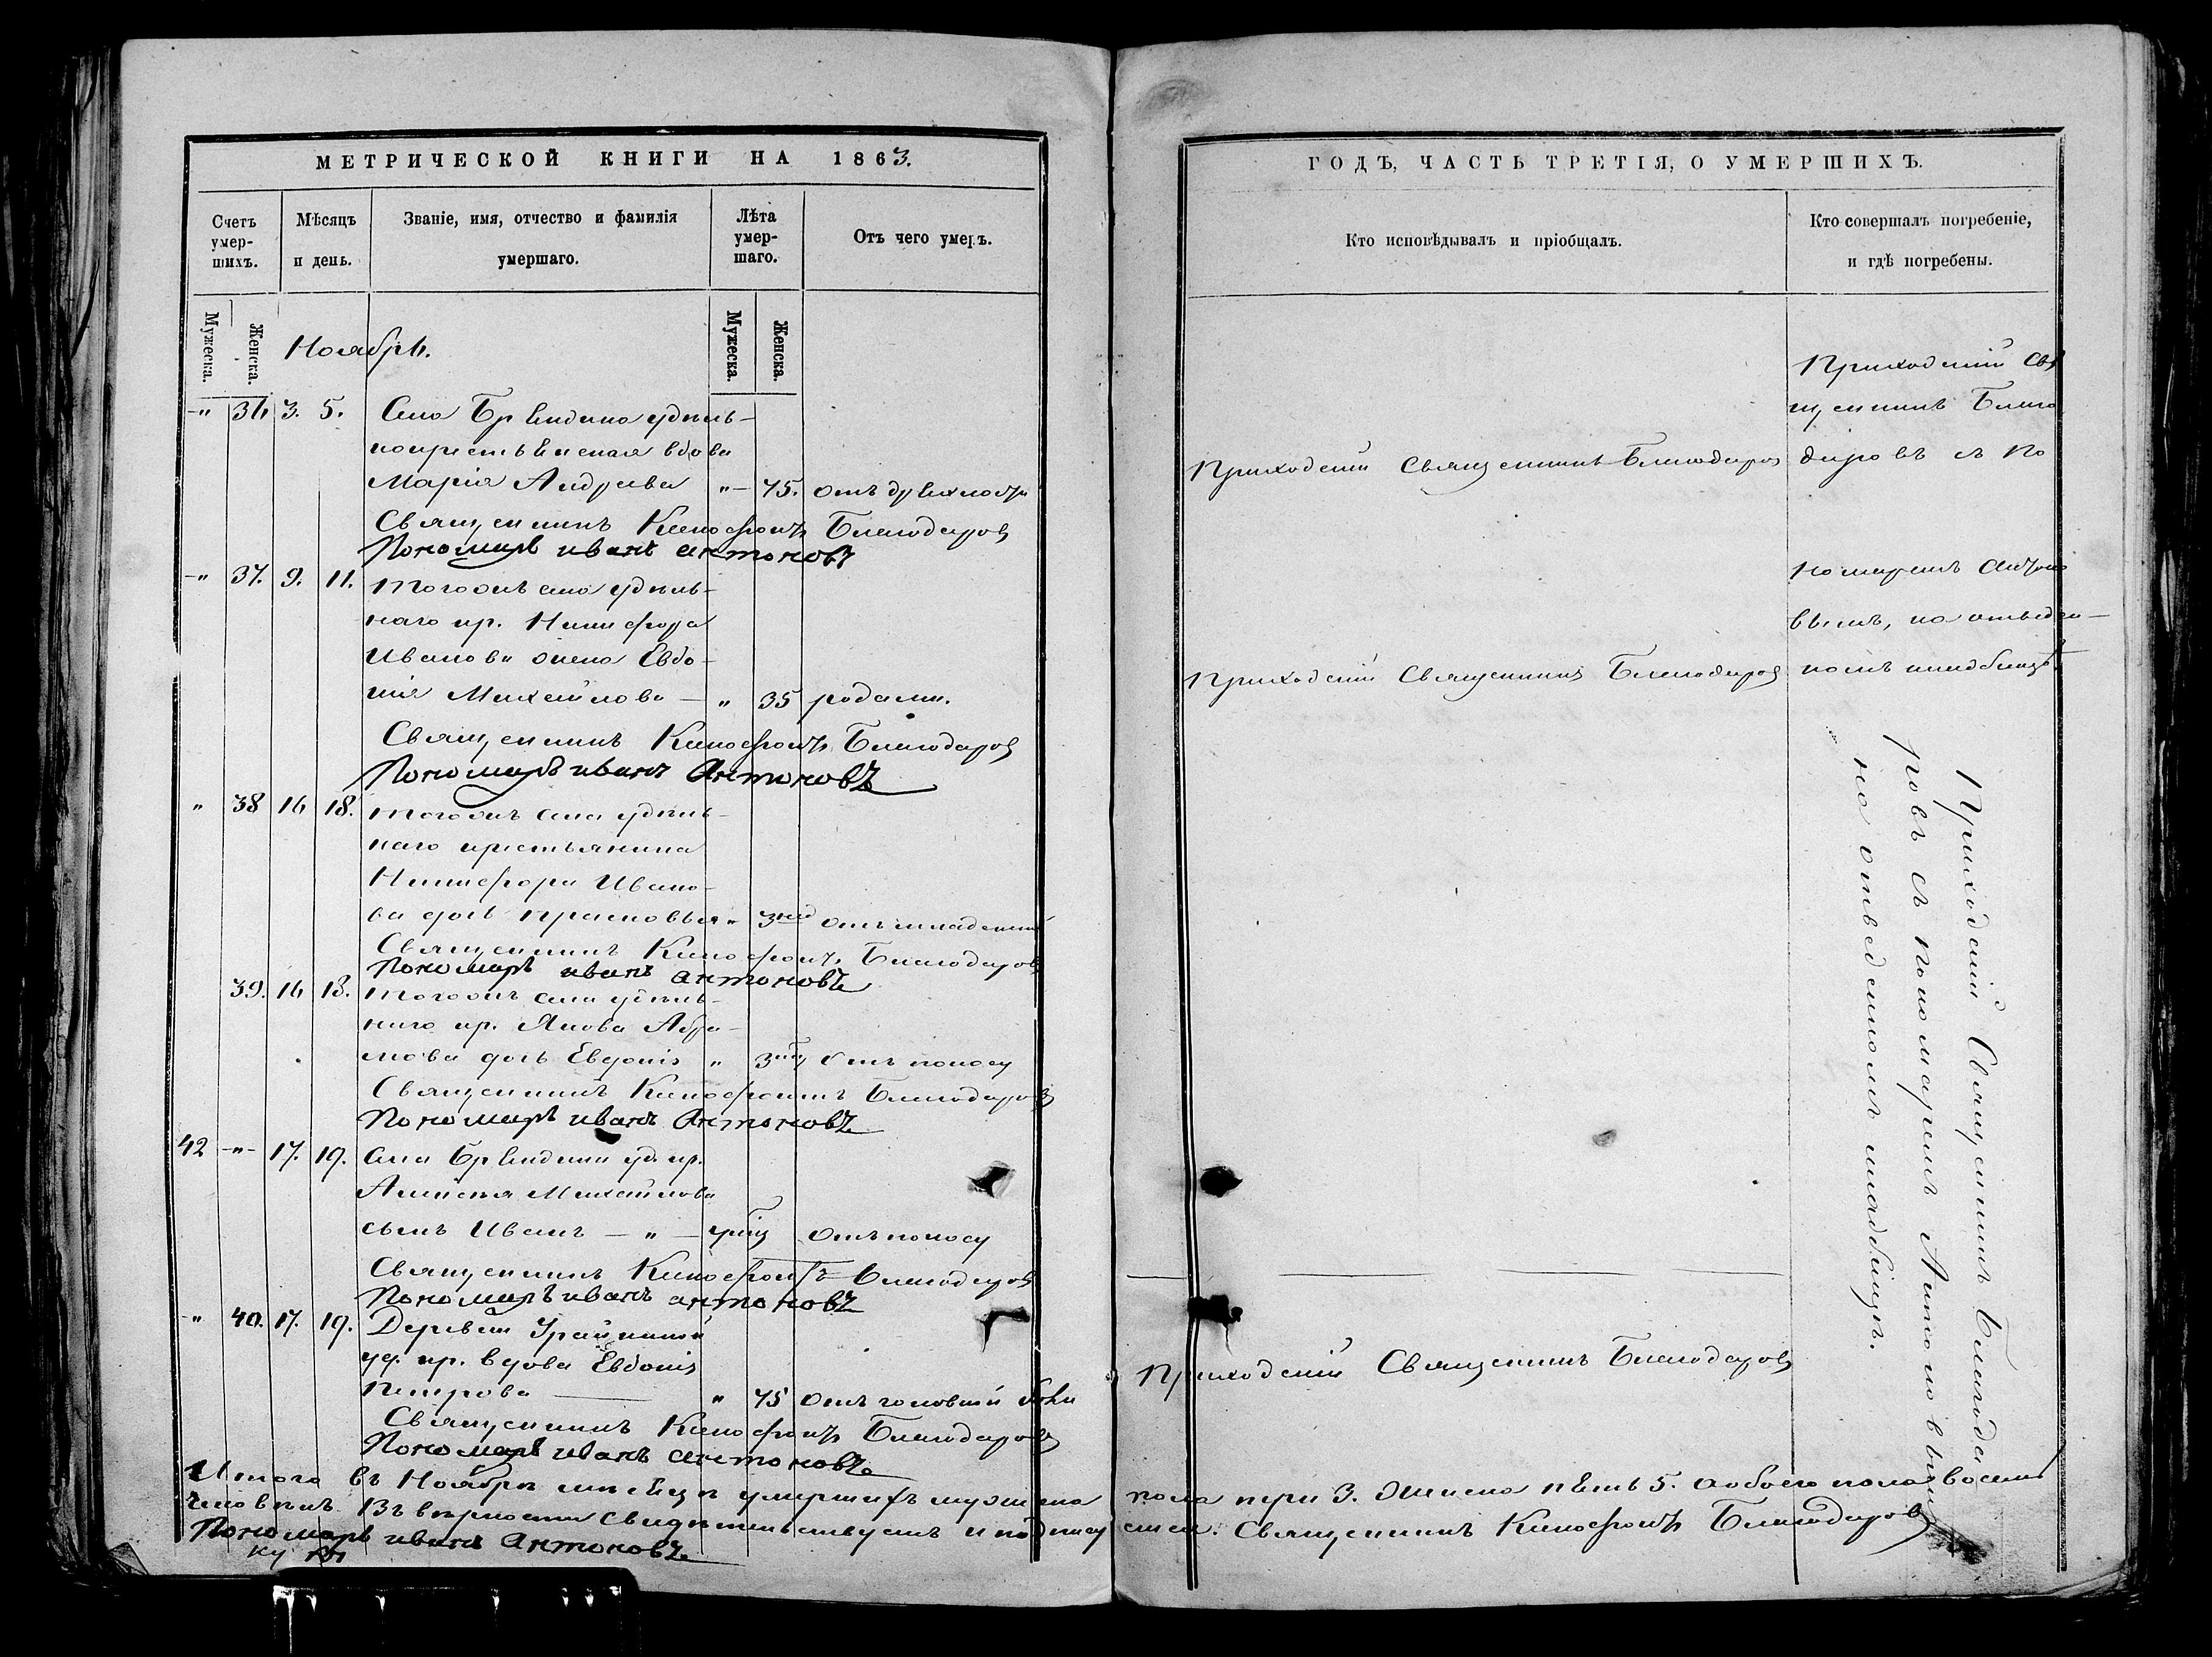 МЕТРИЧЕСКОЙ КНИГИ НА 1863.
Счетъ умер-шихъ.
Мѣсяцъ и день.
Званіе, имя, отчество и фамилія умершаго.
Лѣта умер-шаго.
Отъ чего умеръ.
Мужеска.
Женска.
Мужеска.
Женска.
Ноябрь.
-"- 36 3. 5. Села удѣль-
нокрестьянская вдова
Марія Андреева "- 75. отъ древности
Священникъ Ксенофонтъ Благодаровъ
Пономарь иванъ антоновъ
-" 37. 9. 11. Тогожъ села удѣль-
наго кр. Никифора
Иванова жена Евдо-
кія Михайлова — " 35 родами.
Священникъ Ксенофонтъ Благодаровъ
Пономарь иванъ Антоновъ
" 38 16 18. Тогожъ села удѣль-
наго крестьянина
Никифора Ивано-
ва дочь Прасковья " 3 нед отъ младенч
Священникъ Ксенофонтъ Благодаровъ
Пономарь иванъ антоновъ
39. 16 18. Тогожъ села удѣль-
наго кр. Якова Абра-
мова дочь Евдокія " 3 отъ поносу
Священникъ Ксенофонтъ Благодаровъ
Пономарь иванъ Антоновъ
42 -"- 17. 19. Села уд. кр.
Алексѣя Михайлова
сынъ Иванъ — " — отъ поносу
Священникъ Ксенофонтъ Благодаровъ
Пономарь иванъ антоновъ
-" 40. 17. 19. Деревни
уд. кр. вдова Евдокія
Петрова " 75 отъ головной боли
Священникъ Ксенофонтъ Благодаровъ
Пономарь иванъ антоновъ
Итого въ Ноябрѣ мѣсяцѣ умершихъ мужеска
человѣкъ. Въ вѣрности свидѣтельствуемъ и подпису
Пономарь иванъ Антоновъ
ГОДЪ, ЧАСТЬ ТРЕТІЯ, О УМЕРШИХЪ.
Кто исповѣдывалъ и пріобщалъ.
Кто совершалъ погребеніе, и гдѣ погребены.
Приходскій Священникъ Благодаровъ
Приходскій Священникъ Благодаровъ
Приходскій Свя
щенникъ Благо
даровъ съ По
номаремъ Антоно
вымъ, на отведен-
номъ кладбищѣ.
Приходскій Священникъ Благода
ровъ съ пономаремъ Антоновымъ
на отведенномъ кладбищѣ.
Приходскій Священникъ Благодаровъ
пола три 3. Женска пять 5. Аобоего пола восемь
емся. Священникъ Ксенофонтъ Благодаровъ